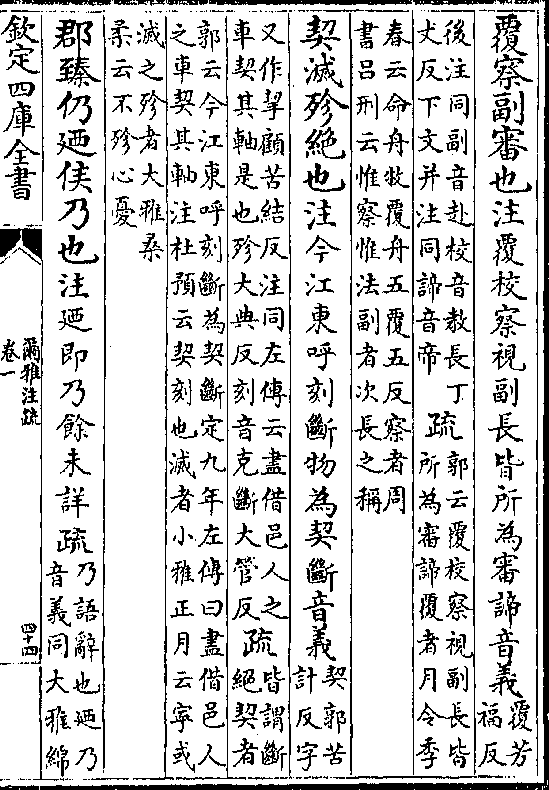 覆察副審也注覆校察視副長皆所為審諦音義覆芳
福反
後注同副音赴校音教長丁
丈反下文并注同諦音帝
疏郭云覆校察視副長皆
所為審諦覆者月令季
春云命舟牧覆舟五覆五反察者周
書吕刑云惟察惟法副者次長之稱
契滅殄絶也注今江東呼刻斷物為契斷音義契郭苦
計反字
又作挈顧苦結反注同左傳云盡借邑人之
車契其軸是也殄大典反刻音克斷大管反
疏皆謂斷
絕契者
郭云今江東呼刻斷為契斷定九年左傳曰盡借邑人
之車契其軸注杜預云契刻也滅者小雅正月云寧或
滅之殄者大雅桑
柔云不殄心憂
郡臻仍廼侯乃也注廼即乃餘未詳疏乃語辭也廼乃
音義同大雅綿
欽定四庫全書
爾雅注疏
卷一
四十四